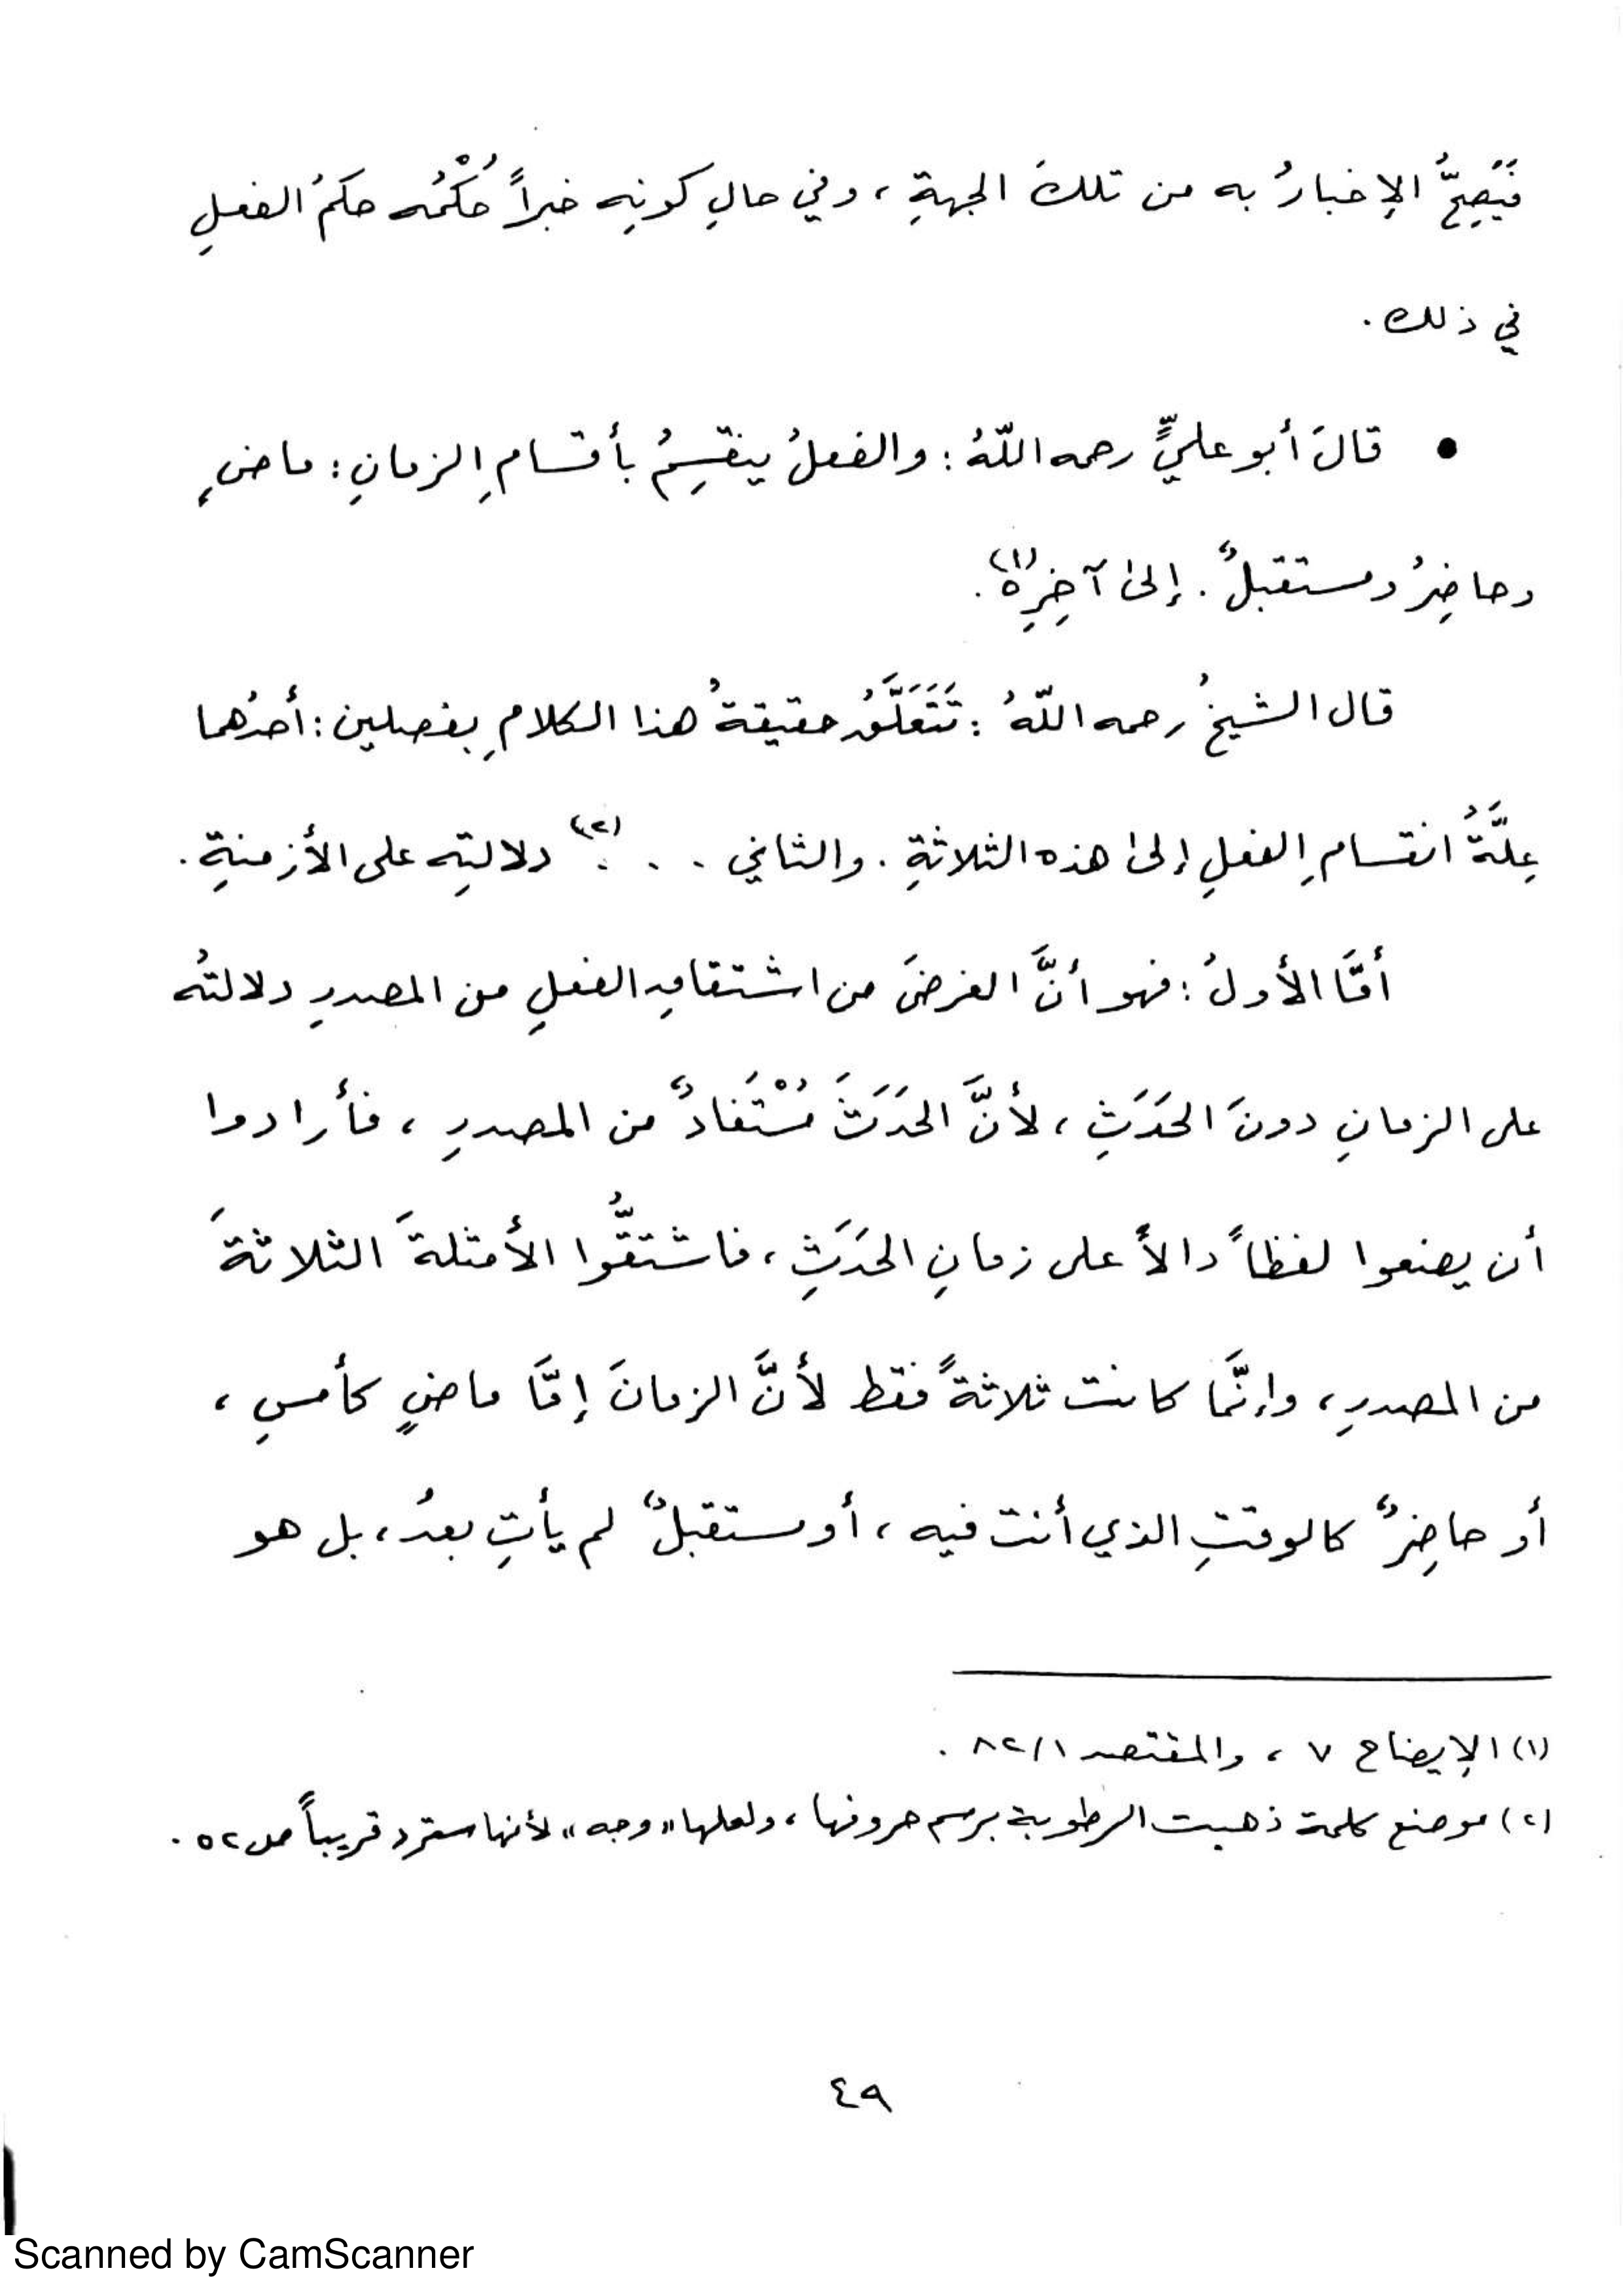 فَيَصِحُّ الإخبارُ به من تلكَ الجهةِ ، وفي حالِ كونِه خبراً حُكْمُه حكمُ الفعلِ
في ذلك .
● قالَ أبو عليٍّ رحمه اللّهُ : والفعلُ ينقسِمُ بأقسامِ الزمانِ : ماضٍ
وحاضِرٌ ومستقبلٌ . إلىٰ آخِرِه(١) .
قال الشيخُ رحمه اللّهُ : تَتَعَلَّقُ حقيقةُ هذا الكلامِ بفصلين : أحدُهما
عِلَّةُ انقسامِ الفعلِ إلىٰ هذه الثلاثةِ . والثاني . . . .(٢) دلالتِه على الأزمنةِ .
أمَّا الأولُ : فهو أنَّ الغرضَ من اشتقاقِ الفعلِ من المصدرِ دلالتُه
على الزمانِ دونَ الحَدَثِ ، لأنَّ الحَدَثَ مُسْتَفَادٌ من المصدرِ ، فأرادوا
أن يصنعوا لفظاً دالاً على زمانِ الحَدَثِ ، فاشتقُّوا الأمثلةَ الثلاثةَ
من المصدرِ ، وإنَّما كانت ثلاثةً فقط لأنَّ الزمانَ إمَّا ماضٍ كأمسِ ،
أو حاضِرٌ كالوقتِ الذي أنت فيه ، أو مستقبلٌ لم يأتِ بعدُ ، بل هو
(١) الإيضاح ٧ ، والمقتصد ٨٢/١ .
(٢) موضع كلمة ذهبت الرطوبة برسم حروفها ، ولعلها «وجه» لأنها سترد قريباً ص ٥٢ .
٤٩
Scanned by CamScanner